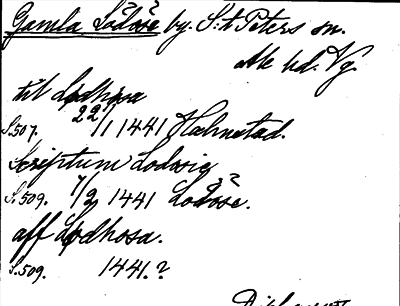 Gamla Lödöse by. S:t Peters sn.
Ale hd. Vg.
til Lødhosa
S. 507. 22/1 1441 Halmstad.
Scriptum Lodosie
S. 509. 7/2 1441 Lödöse.
aff Lødhosa.
S. 509. 1441.?